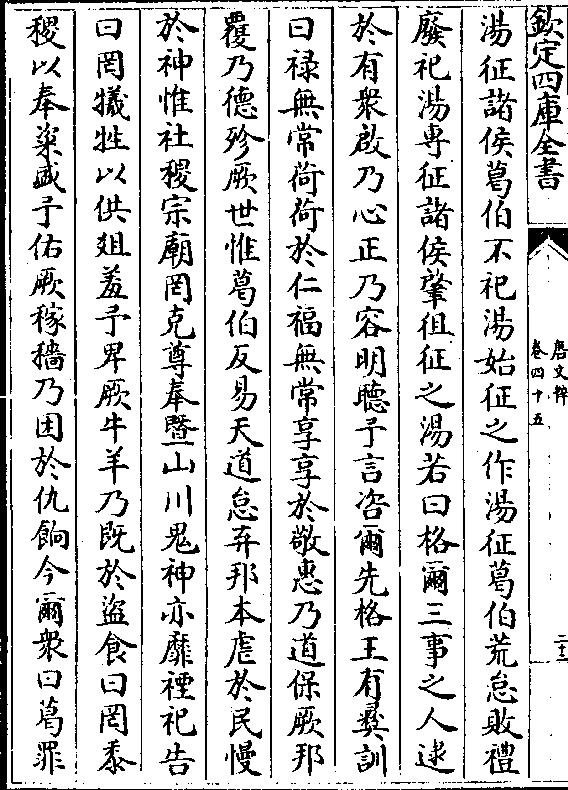 欽定四庫全書
唐文粹
卷四十五
二十三
湯征諸侯葛伯不祀湯始征之作湯征葛伯荒怠敗禮
廢祀湯専征諸侯肇徂征之湯若曰格爾三事之人逮
於有衆啟乃心正乃容明聽予言咨爾先格王有彝訓
曰禄無常荷荷於仁福無常享享於敬惠乃道保厥邦
覆乃德殄厥世惟葛伯反易天道怠弃邦本虐於民慢
於神惟社稷宗廟罔克尊奉暨山川鬼神亦靡禋祀告
曰罔犧牲以供俎羞予畀厥牛羊乃既於盜食曰罔黍
稷以奉粢盛予佑厥稼穡乃困於仇餉今爾衆曰葛罪